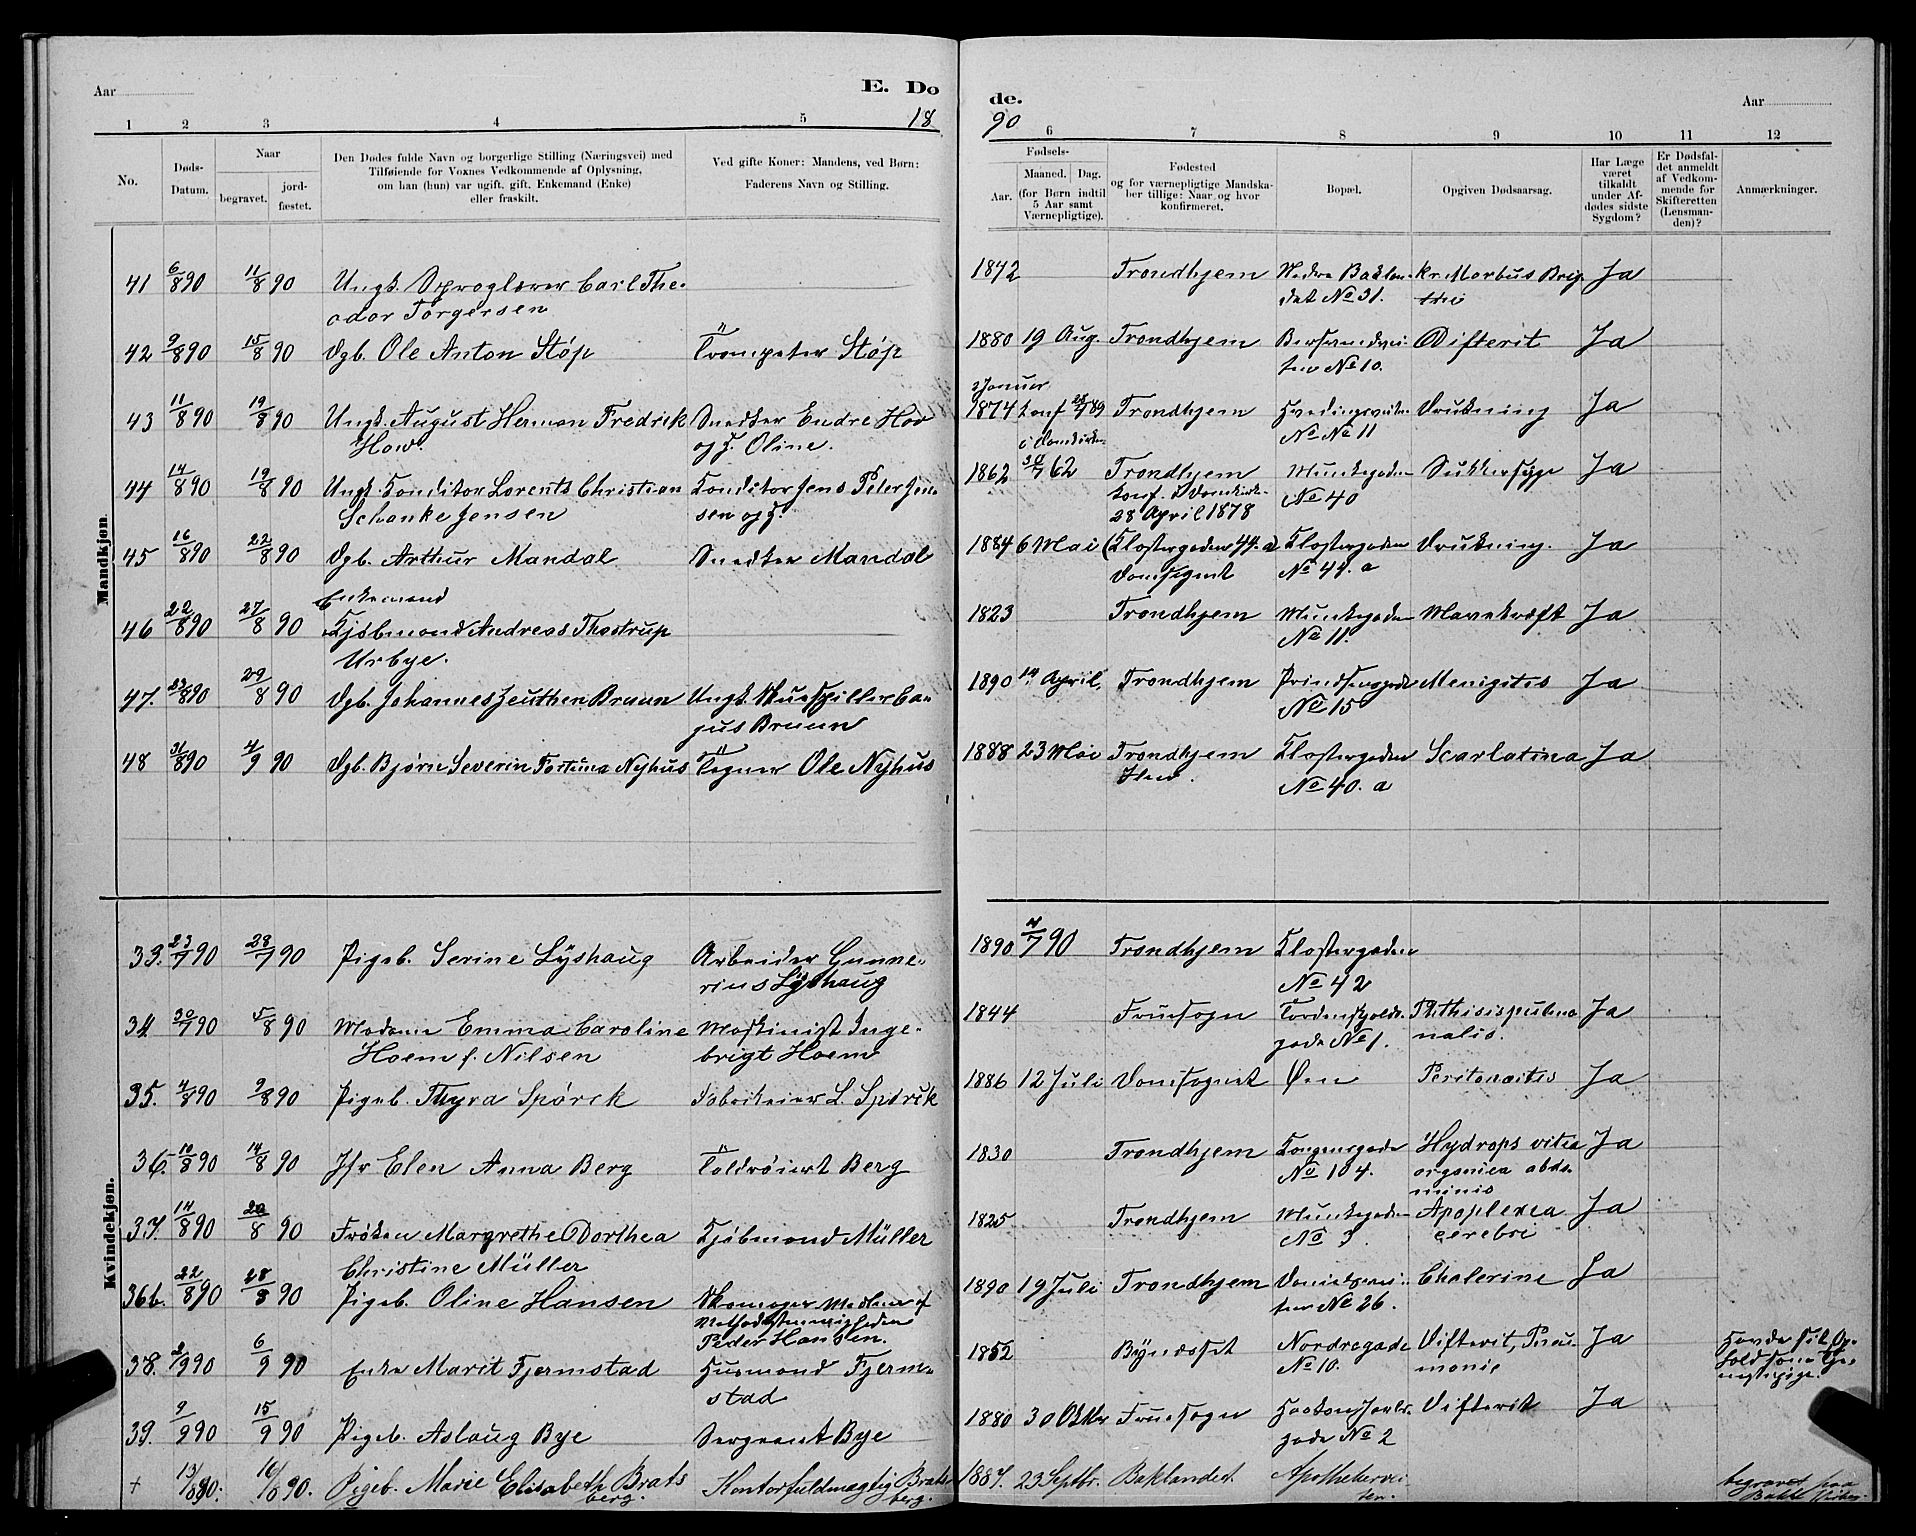 Aar
E. Do
de.
Aar
18
90
1 2 3 4 5 6 7 8 9 10 11 12
No.
Døds-
Datum.
Naar
begravet.
jord-
fæstet.
Den Dødes fulde Navn og borgerlige Stilling (Næringsvei) med
Tilføiende for Voxnes Vedkommende af Oplysning,
om han (hun) var ugift, gift, Enkemand (Enke)
eller fraskilt.
Ved gifte Koner: Mandens, ved Børn:
Faderens Navn og Stilling.
Fødsels-
Aar.
Maaned. Dag.
(for Børn indtil
5 Aar samt
Værnepligtige).
Fødested
og for værnepligtige Mandska-
ber tillige: Naar og hvor
konfirmeret.
Bopæl.
Opgiven Dødsaarsag.
Har Læge
været
tilkaldt
under Af-
dødes sidste
Sygdom?
Er Dødsfal-
det anmeldt
af Vedkom-
mende for
Skifteretten
(Lensman-
den)?
Anmærkninger.
Mandkjøn
41 6/8 90 11/8 90 Ungk. Sproglærer Carl The-
odor Torgersen
1842 Trondhjem Nedre Baklan-
det No 31. kr. Morbus Brig
thii Ja
42 9/8 90 15/8 90 Dgb. Ole Anton Støp Trompeter Støp 1880 19 Aug. Trondhjem
No 10. Difterit Ja
43 11/8 90 19/8 90 Ungk. August Herman Fredrik
How. Snedker Endre Hov
og H. Oline.
Januar
1874 Konf Trondhjem
No 11 Drukning Ja
44 14/8 90 19/8 90 Ungk. Konditor Lorents Christian
Schanke Jensen Konditor Jens Peter Jen-
sen og H.
1862 30/7 62 Trondhjem
konf. i Domkirke-
28 April 1878 Munkegaden
No 40 Sukkersyge Ja
45 16/8 90 22/8 90 Dgb. Arthur Mandal Snedker Mandal 1884 6 Mai (Klostergaden 44.a)
Domsognet Klostergaden
No 44.a Drukning. Ja
46 22/8 90 27/8 90 Enkemand
Kjøbmand Andreas Thostrup
Urbye.
1823 Trondhjem Munkegaden
No 11. Mavekræft Ja
47. 23/8 90 29/8 90 Dgb. Johannes Zeuthen Bruun Ungk. Skuespiller Ca-
jus Bruun
1890 14 April, Trondhjem Prindsensgade
No 15 Menigitis Ja
48 31/8 90 4/9 90 Dgb. Bjørn Severin Fortuna Nyhus Tegner Ole Nyhus 1888 23 Mai Trondhjem
Ilen. Klostergaden
No 40. a Scarlatina Ja
Kvindekjøn.
33. 23/7 90 28/7 90 Pigeb. Serine Lyshaug Arbeider Gunne-
rius Lyshaug
1890 4/7 90 Trondhjem Klostergaden
No 42
34 30/7 90 5/8 90 Madam Emma Caroline
Hoem f. Nilsen Maskinist Inge-
brigt Hoem
1844 Fruesogn Tordenskjolds-
gade No 1. Phthisis pulmo
nalis. Ja
35. 4/8 90 9/8 90 Pigeb. Thyra Spørck Fabrikeier L. Spørck 1886 12 Juli Domsognet Øen Peritonaitis Ja
36. 10/8 90 14/8 90 Jfr Elen Anna Berg Toldrøiert Berg 1830 Trondhjem Kongensgade
No 104. Hydrops vitia
organica abdo-
minis Ja
37. 14/8 90 20/8 90 Frøken Margrethe Dorthea
Christine Müller Kjøbmand Müller
1825 Trondhjem Munkegaden
No 3. Apoplexia
cerebri Ja
36b. 22/8 90 28/8 90 Pigeb. Oline Hansen Skomager Medlem af
Methodistmenigheden
Peder Hansen.
1890 19 Juli Trondhjem
No 26. Cholerine Ja
38. 2/9 90 6/9 90 Enke Marit Fjermstad Husmand Fjerm-
stad
1852 Byneset Nordregade
No 10. Difterit, Pneu-
monie Ja
39. 9/9 90 15/9 90 Pigeb. Aslaug Bye Sergeant Bye 1880 30 Oktbr Fruesogn Haakon Jarls-
gade No 2 Difterit Ja
+ 13/8 90. 16/8 90. Pigeb. Marie Elisabeth Brats
berg. Kontorfuldmægtig Brats
berg. 1887. 23 Septbr. Baklandet Apothekervei
ten. begravet paa